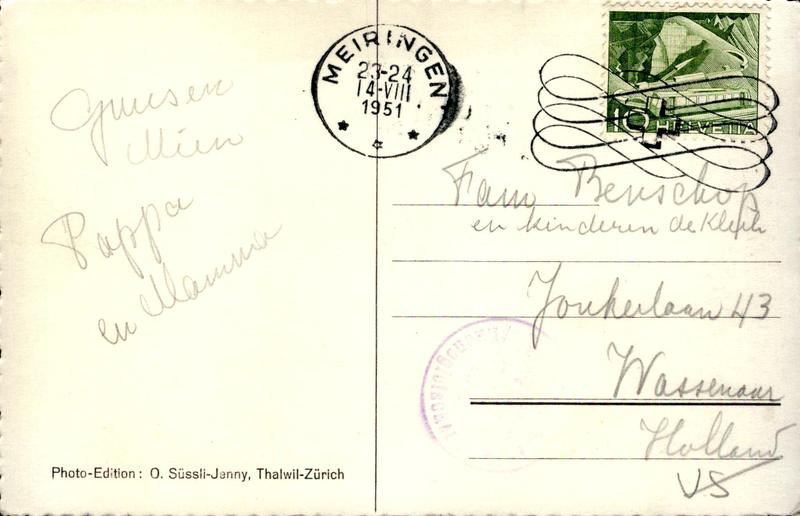 Mien
Pappa
en Mamma
Photo-Edition: O. Süssli-Jenny, Thalwil-Zürich
MEIRINGEN
23-24
14-VIII
1951
10
HELVETIA
Fam Benschop
en kinderen de Kleijn
Jonkerlaan 43
Wassenaar
Holland